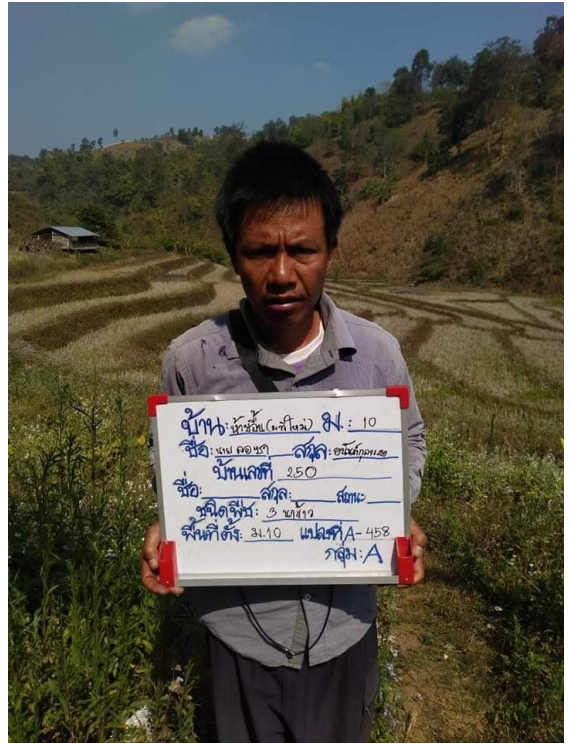 บ้าน: ห้วยลึ้น (ผสีใหม่) ม.: 10
ชื่อ: นาย ลอซา สกุล:
บ้านเลขที่ 250
ชื่อ: สกุล: สถานะ
ชนิดพืช: 3 นาข้าว
พื้นที่ตั้ง: ม.10 แปลงที่ A-458
กลุ่ม: A